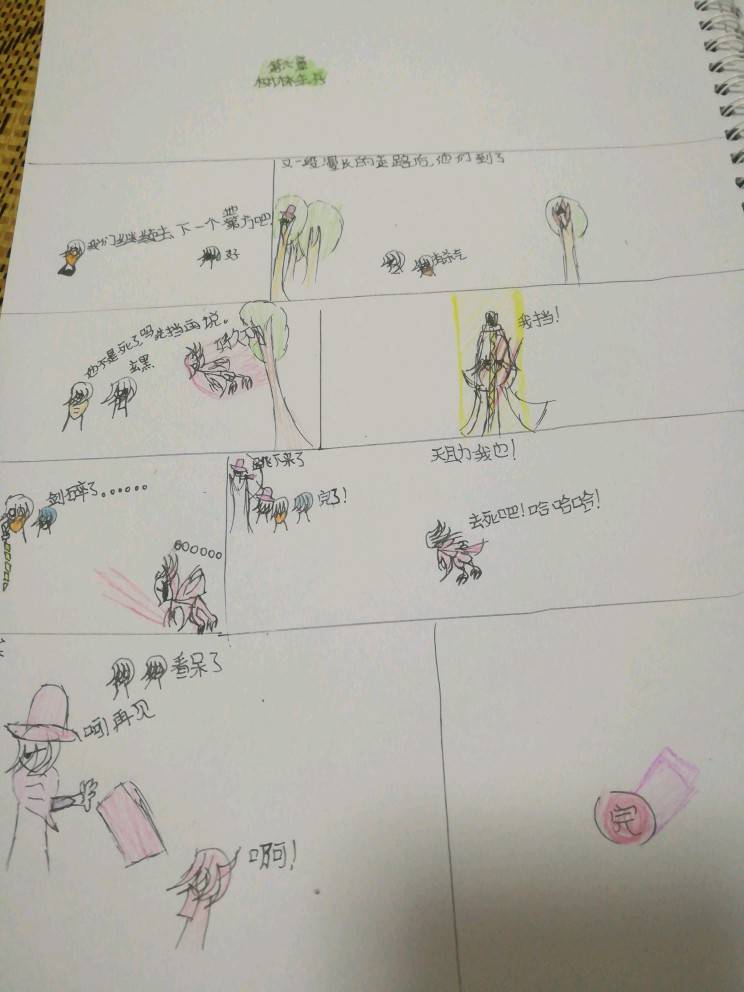 第六章
树林生兵
我们继续去下一个地方吧!
好
又一段漫长的走路后,他们到了
有杀气
他不是死了吗 先挡再说。
去黑
好久不
我挡!
剑碎了……
……
跳下来了
完了!
天助我也!
去死吧!哈哈哈!
看呆了
呵 再见
啊!
完